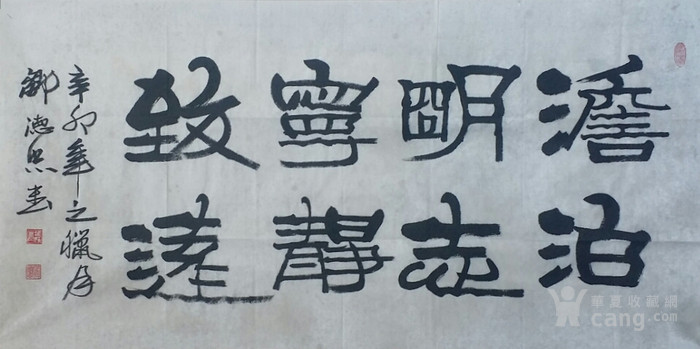 澹泊
明志
寧靜
致遠
辛卯年之臘月
鄒德忠书
華夏收藏網
cang.com